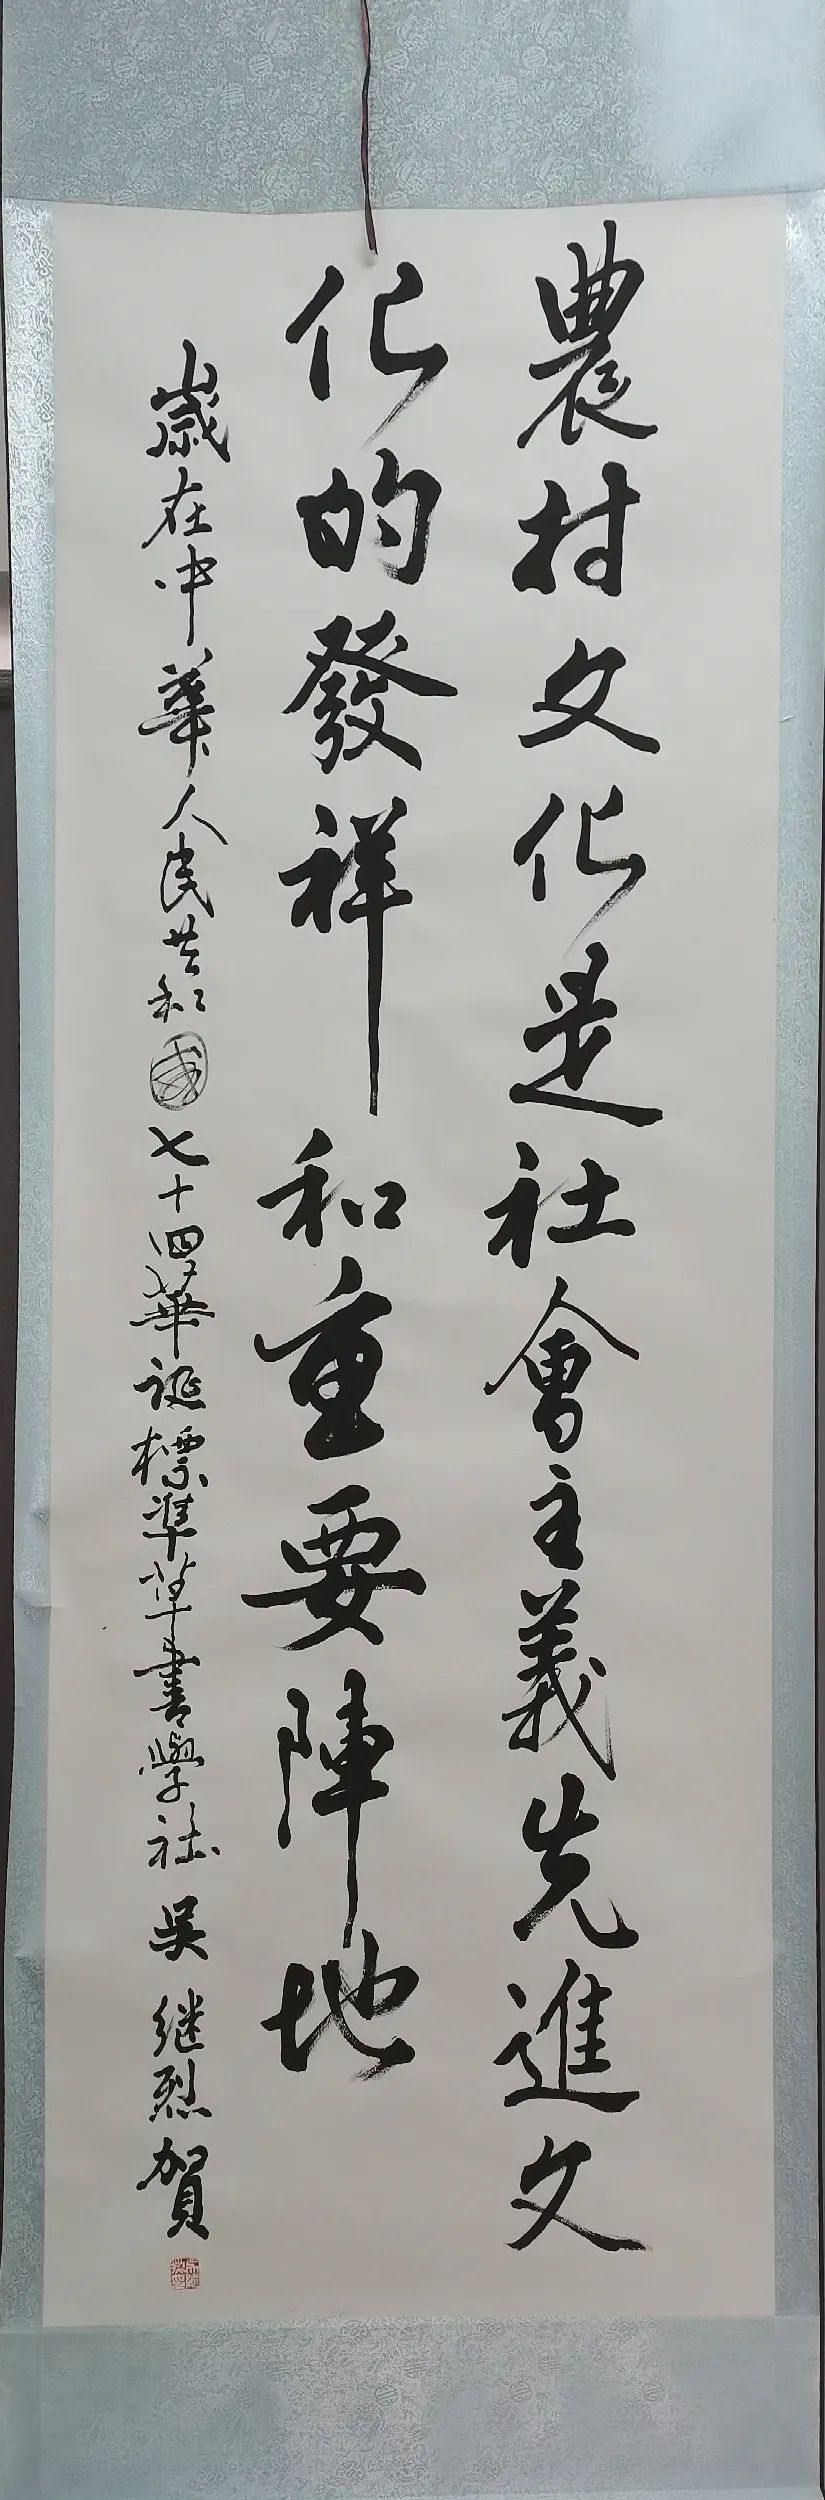 農村文化是社會主義先進文
化的發祥和重要陣地
歲在中華人民共和國七十四華誕標準草書學社吴继烈賀